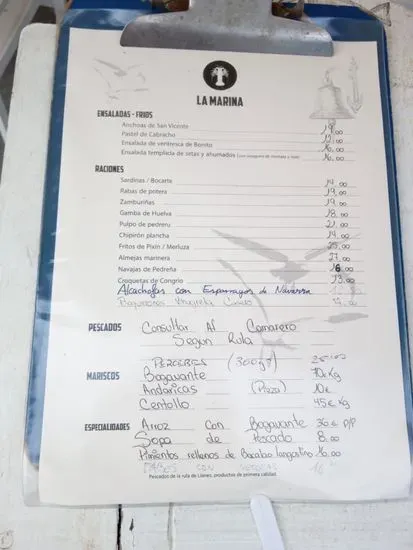 LA MARINA
ENSALADAS - FRIOS
Anchoas de San Vicente
Pastel de Cabracho 19,00
Ensalada de ventresca de Bonito 12,00
Ensalada templada de setas y ahumados 16,00
16,00
RACIONES
Sardinas / Bocarte 14,00
Rabas de potera 19,00
Zamburiñas 19,00
Gamba de Huelva 18,00
Pulpo de pedreru 21,00
Chipirón plancha 19,00
Fritos de Pixín / Merluza 25,00
Almejas marinera 27,00
Navajas de Pedreña 16,00
Croquetas de Congrio 13,00
Alcachofas con Esparragos de Navarra
PESCADOS Consultar Al Camarero
Segun Rula
PERCEBES (300gr)
MARISCOS Bogavante 70€Kg
Andaricas (Pieza) 10€
Centollo 45€ Kg
ESPECIALIDADES Arroz con Bogavante 36€ P/P
Sopa de Pescado 8.00
Pimientos rellenos de Bacalao langostino 16.00
CON
Pescados de la rula de Llanes, productos de primera calidad.